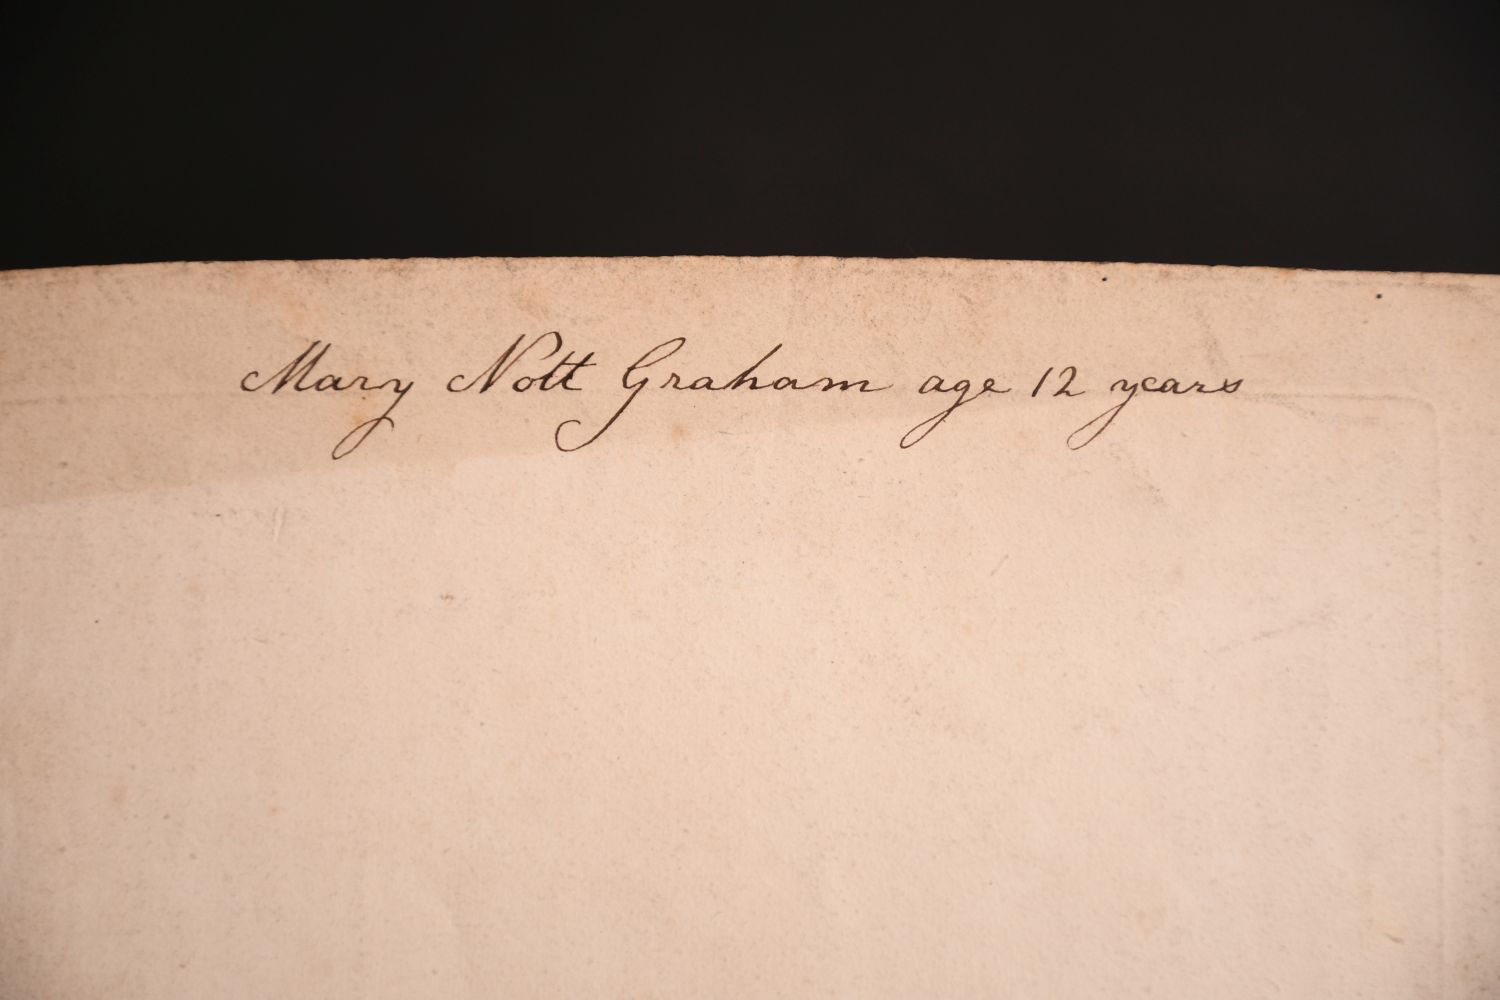 Mary Nott Graham age 12 years